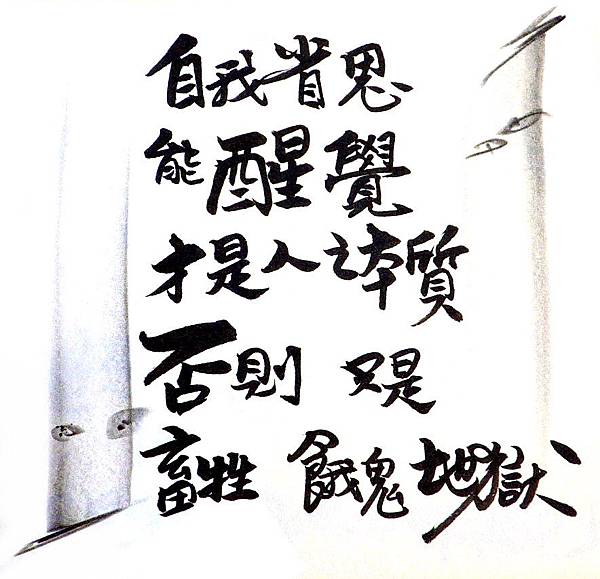 自我省思
能醒覺
才是人之本質
否則只是
畜牲 餓鬼地獄